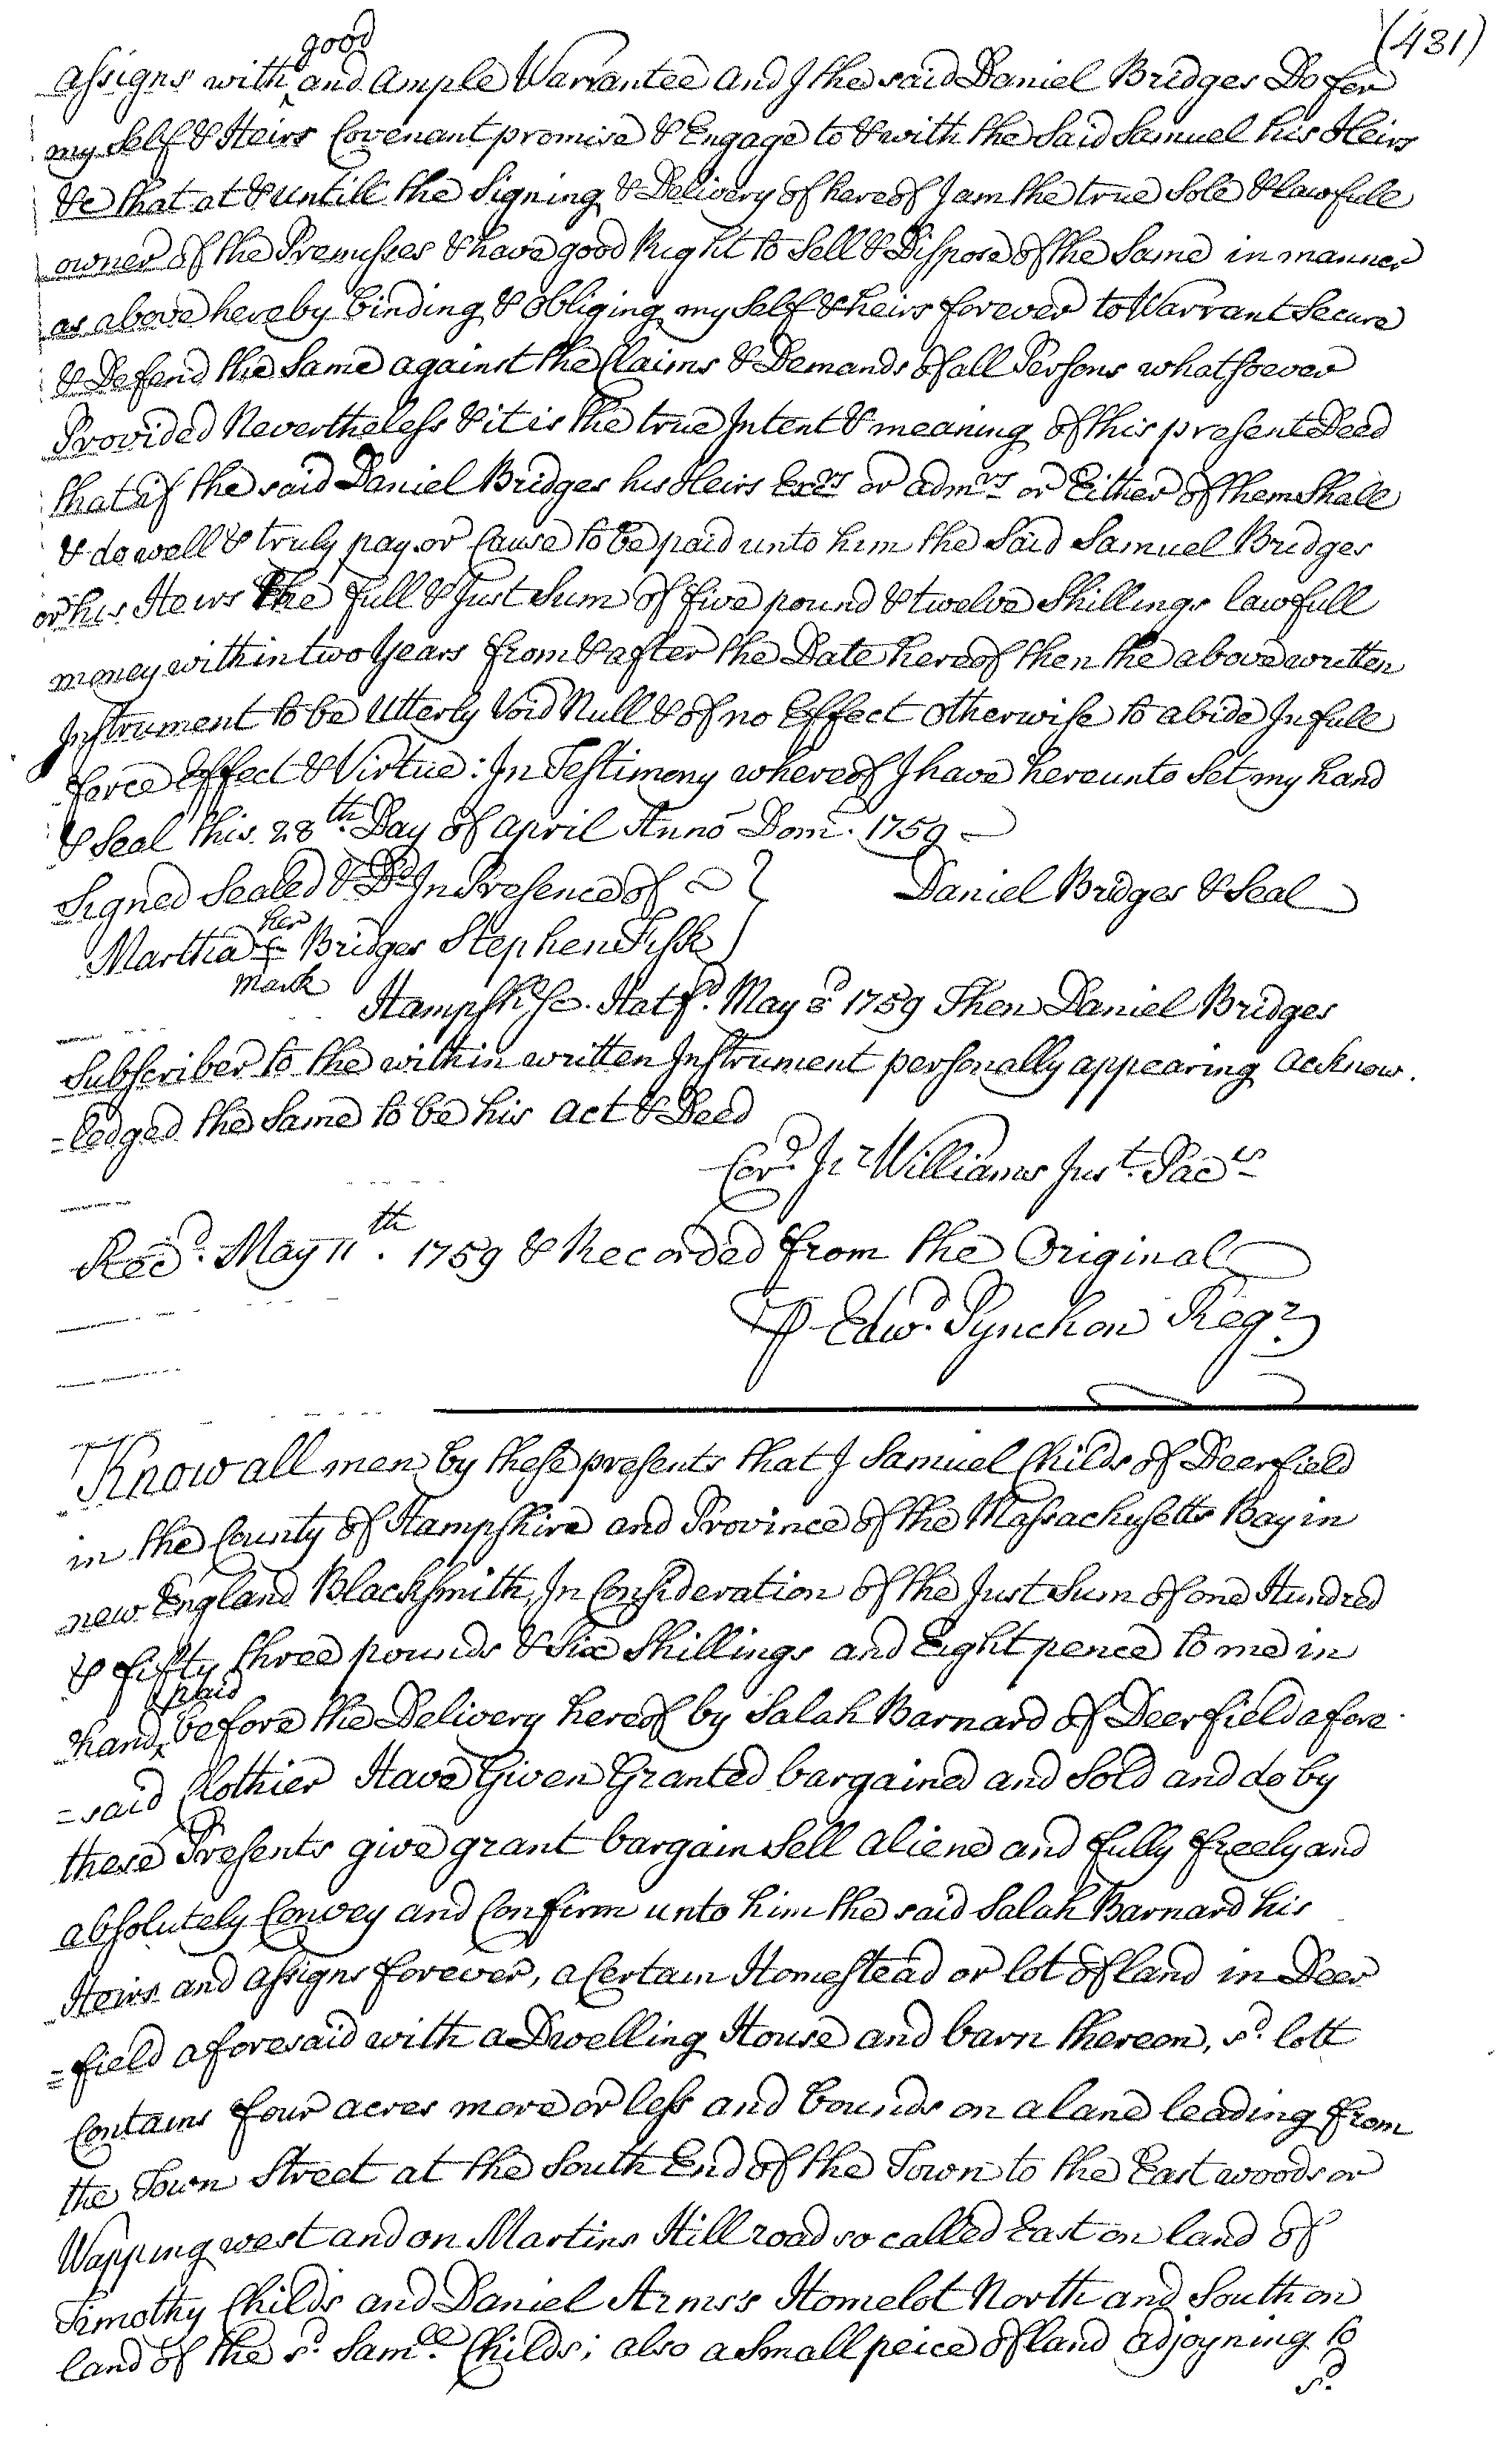 (431)
Assigns with good and Ample Warrantee and I the said Daniel Bridges Do for
my self & Heirs Covenant promise & Engage to & with the Said Samuel his Heirs
&c that at & untill the Signing & Delivery of hereof I am the true Sole & lawfull
owner of the Premisses & have good Right to Sell & Dispose of the Same in manner
as above hereby Binding & Obliging my Self & heirs forever to Warrant Secure
& Defend the Same against the Claims & Demands of all Persons whatsoever
Provided Nevertheless & it is the true Intent & meaning of this present Deed
that if the said Daniel Bridges his Heirs Exrs or admrs or Either of them Shall
& do well & truly pay or Cause to be paid unto him the Said Samuel Bridges
or his Heirs the full & Just Sum of five pound & twelve Shillings lawfull
money within two Years from & after the Date hereof then the above written
Instrument to be Utterly Void Null & of no Effect otherwise to abide In full
force Effect & Virtue: In Testimony whereof I have hereunto Set my hand
& Seal this 28th Day of April Anno Dom. 1759
Signed Sealed & Dd In Presence of Daniel Bridges & Seal
Martha her mark Bridges Stephen Fisk
Hampshr Sc. Hatfd. May 5d 1759 Then Daniel Bridges
Subscriber to the within written Instrument personally appearing acknow
=ledged the Same to be his act & Deed
Cor. Jr Williams Just. Pacis
Recd. May 11th. 1759 & Recorded from the Original
P Edwd. Pynchon Regr
Know all men by these presents that I Samuel Childs of Deerfield
in the County of Hampshire and Province of the Massachusetts Bay in
new England Blacksmith, In Consideration of the Just Sum of one Hundred
& fifty three pounds & Six Shillings and Eight pence to me in
hand paid before the Delivery hereof by Salah Barnard of Deerfield afore
=said Clothier Have Given Granted bargained and Sold and do by
these Presents give grant bargain Sell aliene and fully freely and
absolutely Convey and Confirm unto him the said Salah Barnard his
Heirs and assigns forever, a Certain Homestead or lot of land in Deer
=field aforesaid with a Dwelling House and barn thereon, sd. lott
Contains four acres more or less and bounds on a lane leading from
the Town Street at the South End of the Town to the East woods or
Wapping west and on Martins Hill road so called East on land of
Timothy Childs and Daniel Arms's Homelot North and South on
land of the sd. Samll. Childs; also a Small peice of land adjoyning to
sd.